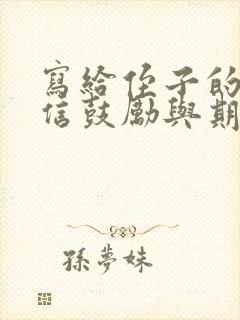 寫給侄子的
信鼓勵與期
孫夢妹